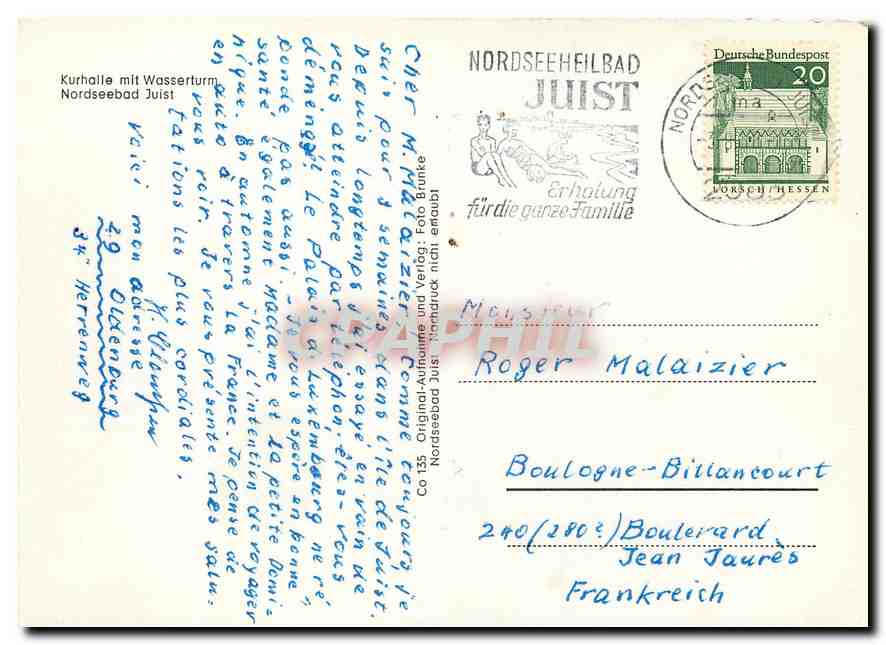 Kurhalle mit Wasserturm
Nordseebad Juist
Cher M. Malaizier, Comme toujours je
suis pour 3 semaines dans l'île de Juist.
Depuis longtemps j'ai essayé en vain de
vous atteindre par téléphon, êtes-vous
déménagé? Le Palais de Luxembourg ne ré-
ponde pas aussi. - Je vous espère en bonne
santé, également Madame et la petite Domi-
nique. En automne j'ai l'intention de voyager
en auto à travers La France. Je pense de
vous voir. Je vous présente mes salu-
tations les plus cordiales.
Voici mon adresse
29 Oldenburg
Herrenweg
Co 135 Original-Aufnahme und Verlag: Foto Brunke
Nordseebad Juist Nachdruck nicht erlaubt
NORDSEEHEILBAD
JUIST
Erholung
für die ganze Familie
Deutsche Bundespost
20
LORSCH/HESSEN
CPAPHIL
Monsieur
Roger Malaizier
Boulogne-Billancourt
Boulevard
Jean Jaurès
Frankreich